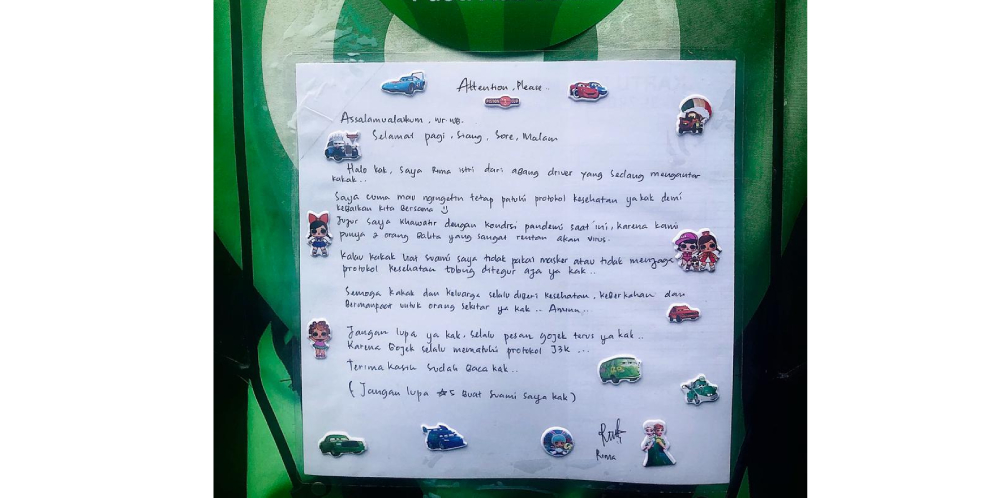 Attention, Please..
PISTON CUP
Assalamualaikum, wr. wb.
Selamat pagi, siang, sore, malam
Halo kak, saya Rima istri dari abang driver yang sedang mengantar
kakak..
Saya cuma mau ngingetin tetap patuhi protokol kesehatan ya kak demi
kebaikan kita bersama
Jujur saya khawatir dengan kondisi pandemi saat ini, karena kami
punya 2 orang Balita yang sangat rentan akan virus.
Kalau kakak liat suami saya tidak pakai masker atau tidak menjaga
protokol kesehatan tolong ditegur aja ya kak..
Semoga kakak dan keluarga selalu diberi kesehatan, keberkahan dan
Bermanfaat untuk orang sekitar ya kak.. Aminn..
Jangan lupa ya kak, selalu pesan gojek terus ya kak..
Karena Gojek selalu mematuhi protokol J3K ...
Terima kasih sudah baca kak..
(Jangan lupa ★5 buat suami saya kak)
Rima